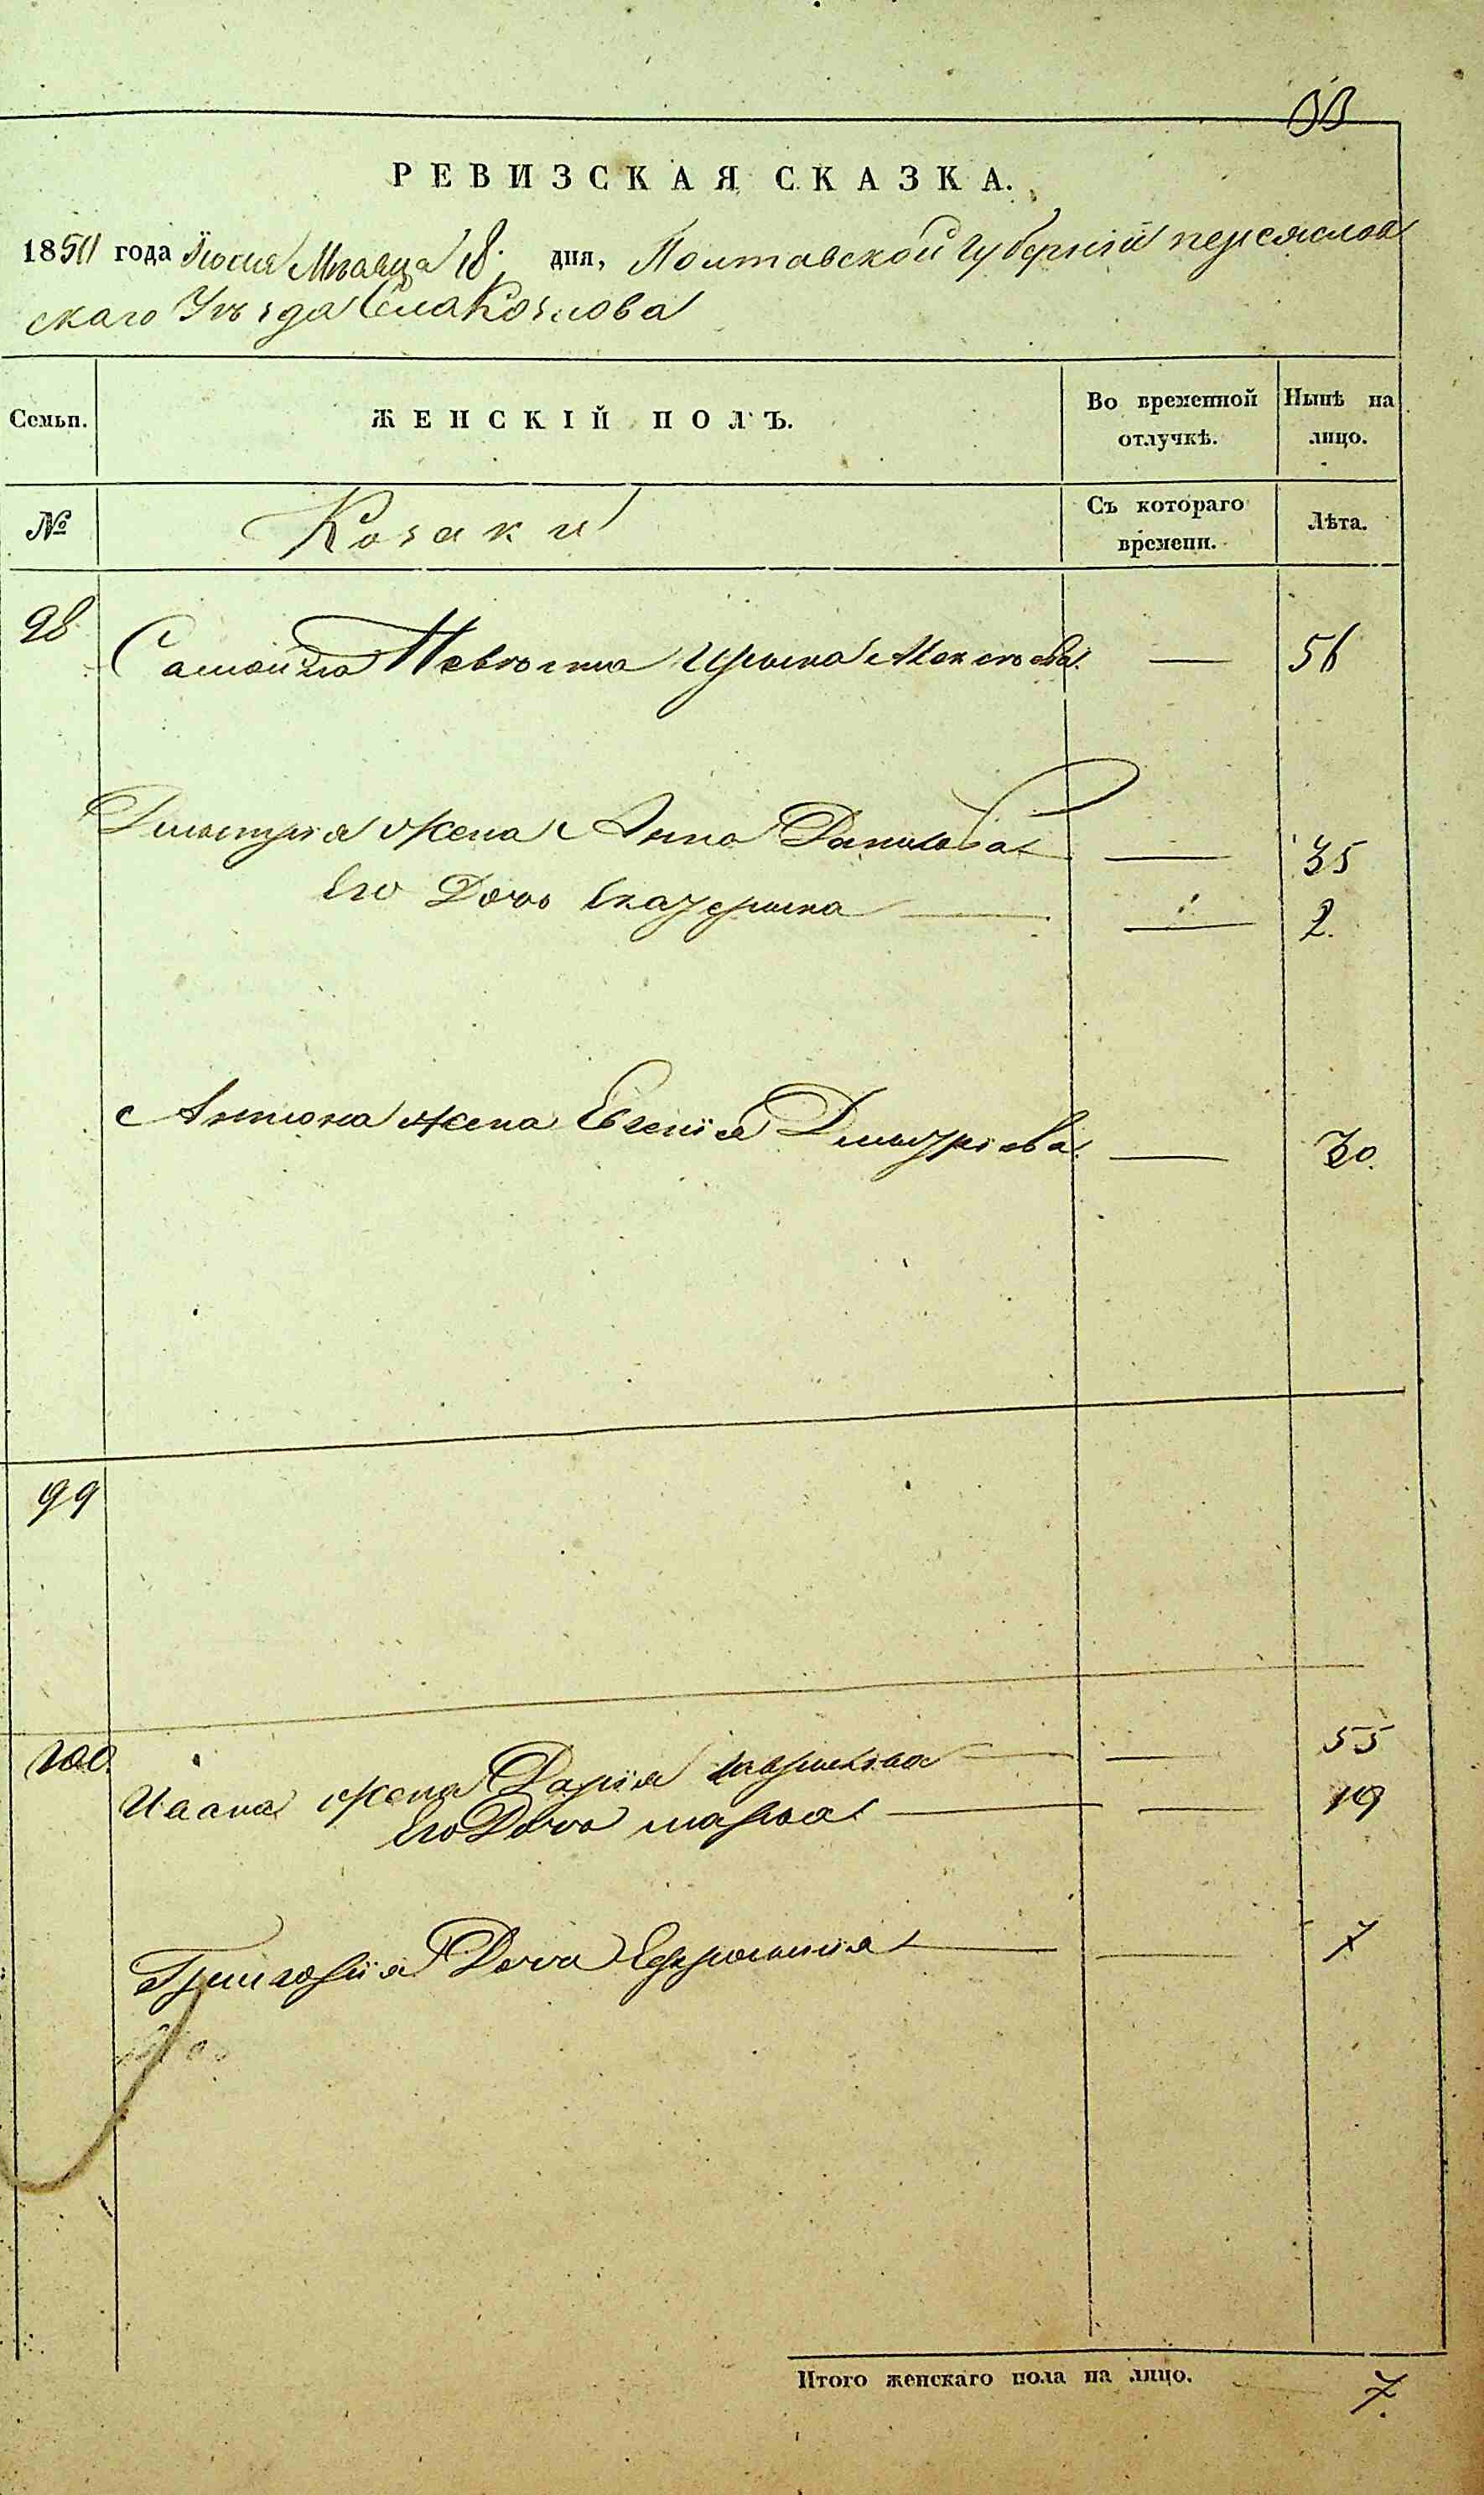 РЕВИЗСКАЯ СКАЗКА.
1850 года Іюня Мѣсяца 18. дня, Полтавской Губерніи переяслов
скаго Уѣзда Села Козлова
Семьи. ЖЕНСКІЙ ПОЛЪ. Во временной отлучкѣ. Нынѣ на лицо.
№ Козаки Съ котораго времени. Лѣта.
98 Самойла Невѣстка Ирына — 56
Дмытрія жена Анна Данилова — 35
Его Дочь Екатерына — 2.
Антона жена Евгенія Дмытріева. — 30.
99
100. Ивана жена Дарія — 55
Его Дочь марья — 19
Григорія Дочь Ефросинія — 7
Итого женскаго пола на лицо. 7.